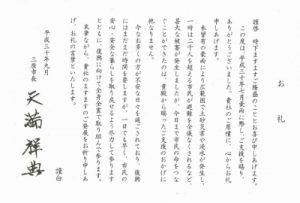 お礼
謹啓　時下ますますご隆盛のこととお喜び申しあげます。
この度は、平成三十年七月豪雨に際し、ご支援を賜り、
ありがとうございました。貴社のご厚情に、心からお礼
申しあげます。
未曽有の豪雨により広範囲で土砂災害や浸水が発生し、
一時は二千人を超える市民が避難を余儀なくされるなど、
甚大な被害が発生しましたが、今日まで市民の命をつな
ぐことができたのは、貴殿から賜ったご支援のおかげに
他なりません。
今なお多くの方が不安な日々を過ごされており、復興
にはまだまだ時間を要しますが、一日でも早く、市民の
安心・安全な暮らしを取り戻せるよう、市民の皆さま
とともに、復興に向けて全身全霊で取り組んで参ります。
末筆ながら、貴社のますますのご発展をお祈り申しあ
げ、お礼の言葉といたします。
謹白
平成三十年九月
三原市長
天満祥典